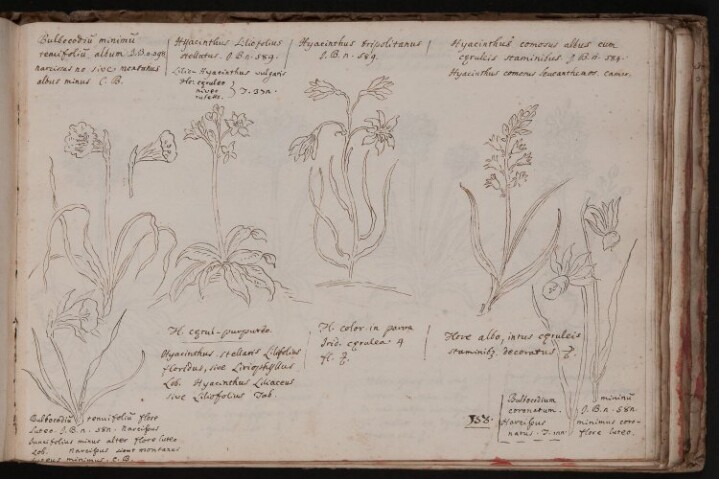 Bulbocodiũ minimũ
tenuifoliũ album J.B.
narcissus
albus minus C.B.
Hyacinthus Liliofolius
stellatus. J.B. n. 589.
Lilio Hyacinthus vulgaris
flor. cęruleo
niveo
Hyacinthus tripolitanus
J.B. n. 589.
Hyacinthus comosus albus cum
cęruleis staminibus. J.B. n. 584.
Hyacinthus comosus leucanthemos
fl. cęrul-purpurëo
Hyacinthus stellaris Lilifolius
floridus, sive Liriophyllus
Lob. Hyacinthus Liliaceus
sive Liliofolius Tab.
fl. color in parva
Irid. cęrulea 4
fl.
flore albo, intus cęruleis
decoratus
Bulbocodiũ tenuifoliũ flore
luteo. J.B. n. 582. Narcissus
juncifolius minus alter flore luteo.
Lob. Narcissus montanus
luteus minimus. C.B.
158.
Bulbocodium minimũ
coronatum. J.B. n. 582.
Narcissus minimus coro-
natus. flore luteo.